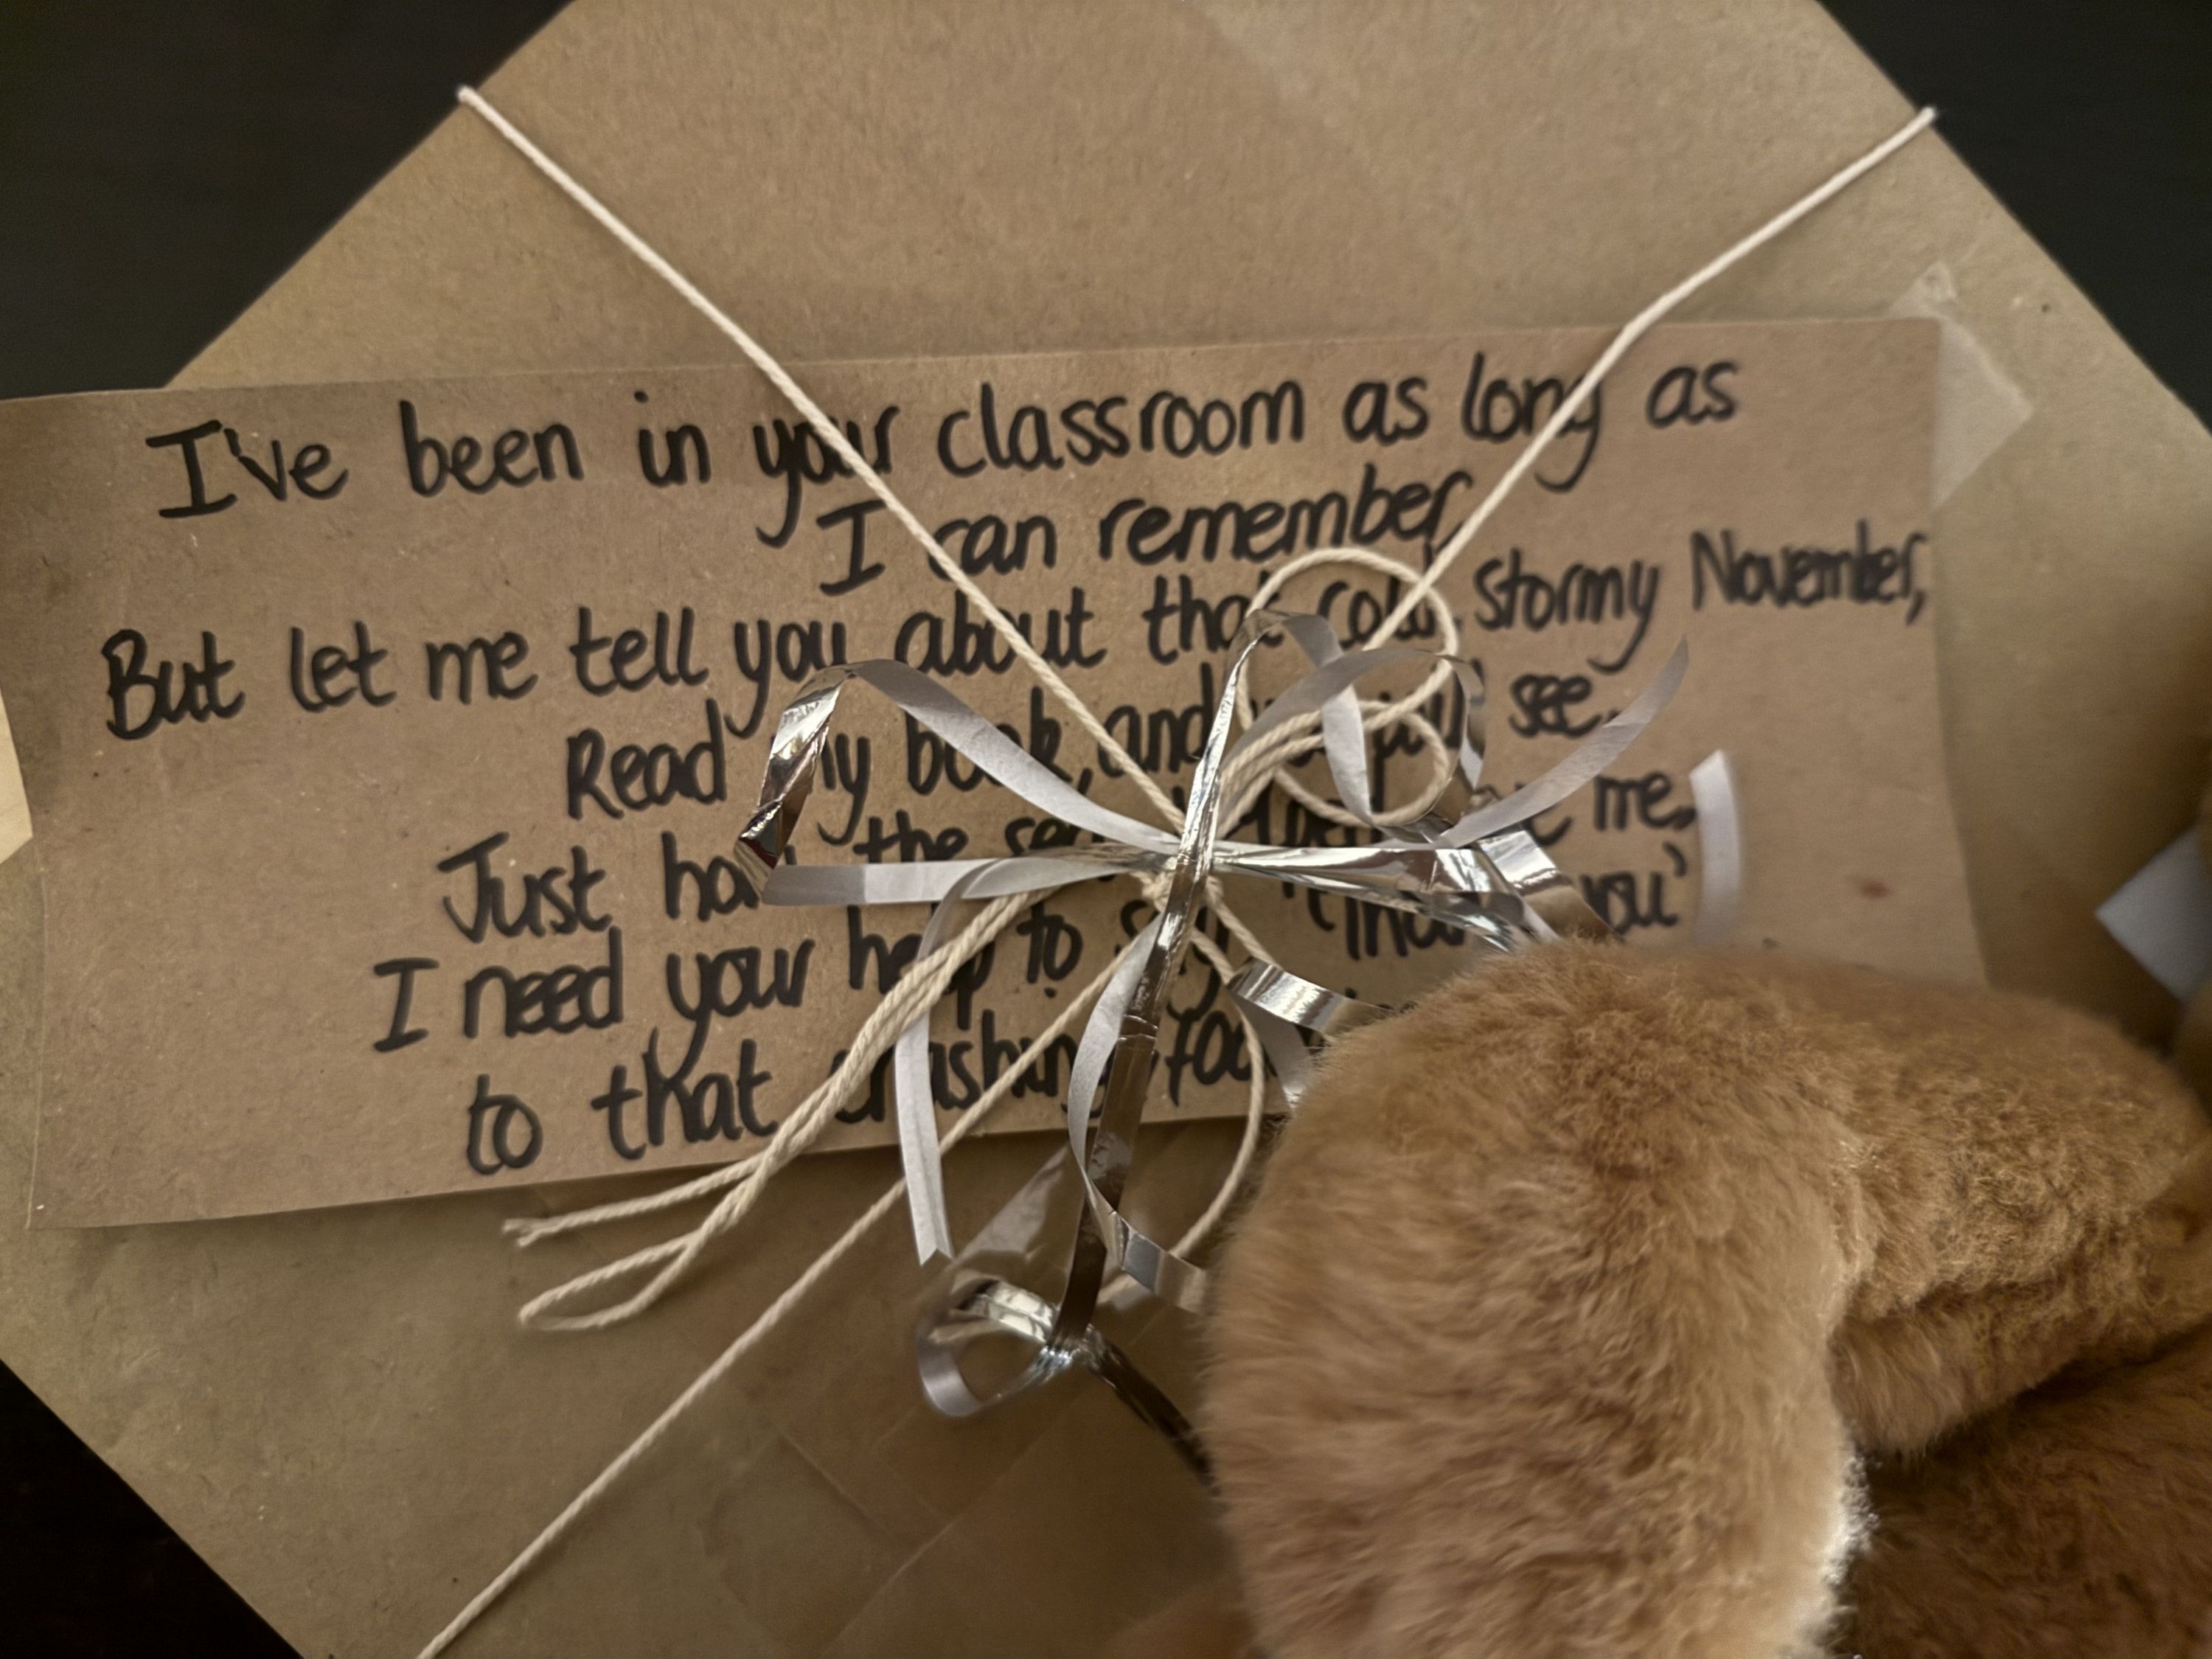 I've been in your classroom as long as
I can remember,
But let me tell you about that cold, stormy November,
Read my book, and you'll see.
Just how the me,
I need your help to say 'Thank you'
to that crashing